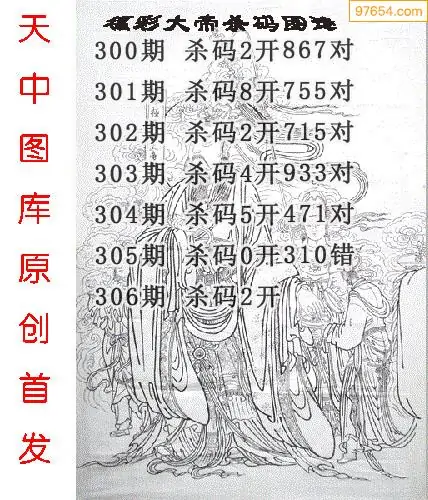 97654.com
福彩大帝杀码图迷
300期 杀码2开867对
301期 杀码8开755对
302期 杀码2开715对
303期 杀码4开933对
304期 杀码5开471对
305期 杀码0开310错
306期 杀码2开
天中图库原创首发